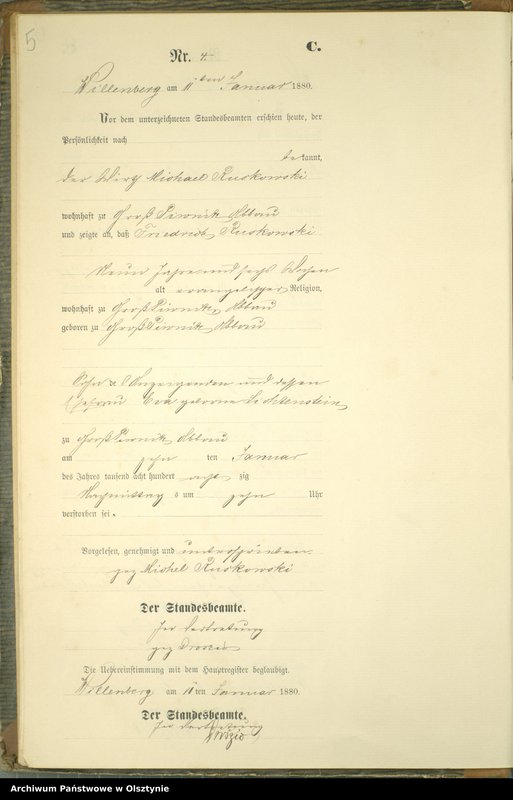 5
C.
Nr. 4.
Willenberg am 11ten Januar 1880.
Vor dem unterzeichneten Standesbeamten erschien heute, der
Persönlichkeit nach
bekannt,
der Wirth Michael Ruskowski
wohnhaft zu Groß Piwnitz Abbau
und zeigte an, daß Friedrich Ruskowski
Neun Jahre und sechs Wochen
alt evangelischer Religion,
wohnhaft zu Groß Piwnitz Abbau
geboren zu Groß Piwnitz Abbau
Sohn des Anzeigenden und dessen
Ehefrau Eva geborne Lichtenstein
zu Groß Piwnitz Abbau
am zehn ten Januar
des Jahres tausend acht hundert acht zig
Nachmittag s um zehn Uhr
verstorben sei.
Vorgelesen, genehmigt und unterschrieben
gez Michel Ruskowski
Der Standesbeamte.
In Vertretung
gez
Die Uebereinstimmung mit dem Hauptregister beglaubigt.
Willenberg am 11ten Januar 1880.
Der Standesbeamte.
In Vertretung
Archiwum Państwowe w Olsztynie